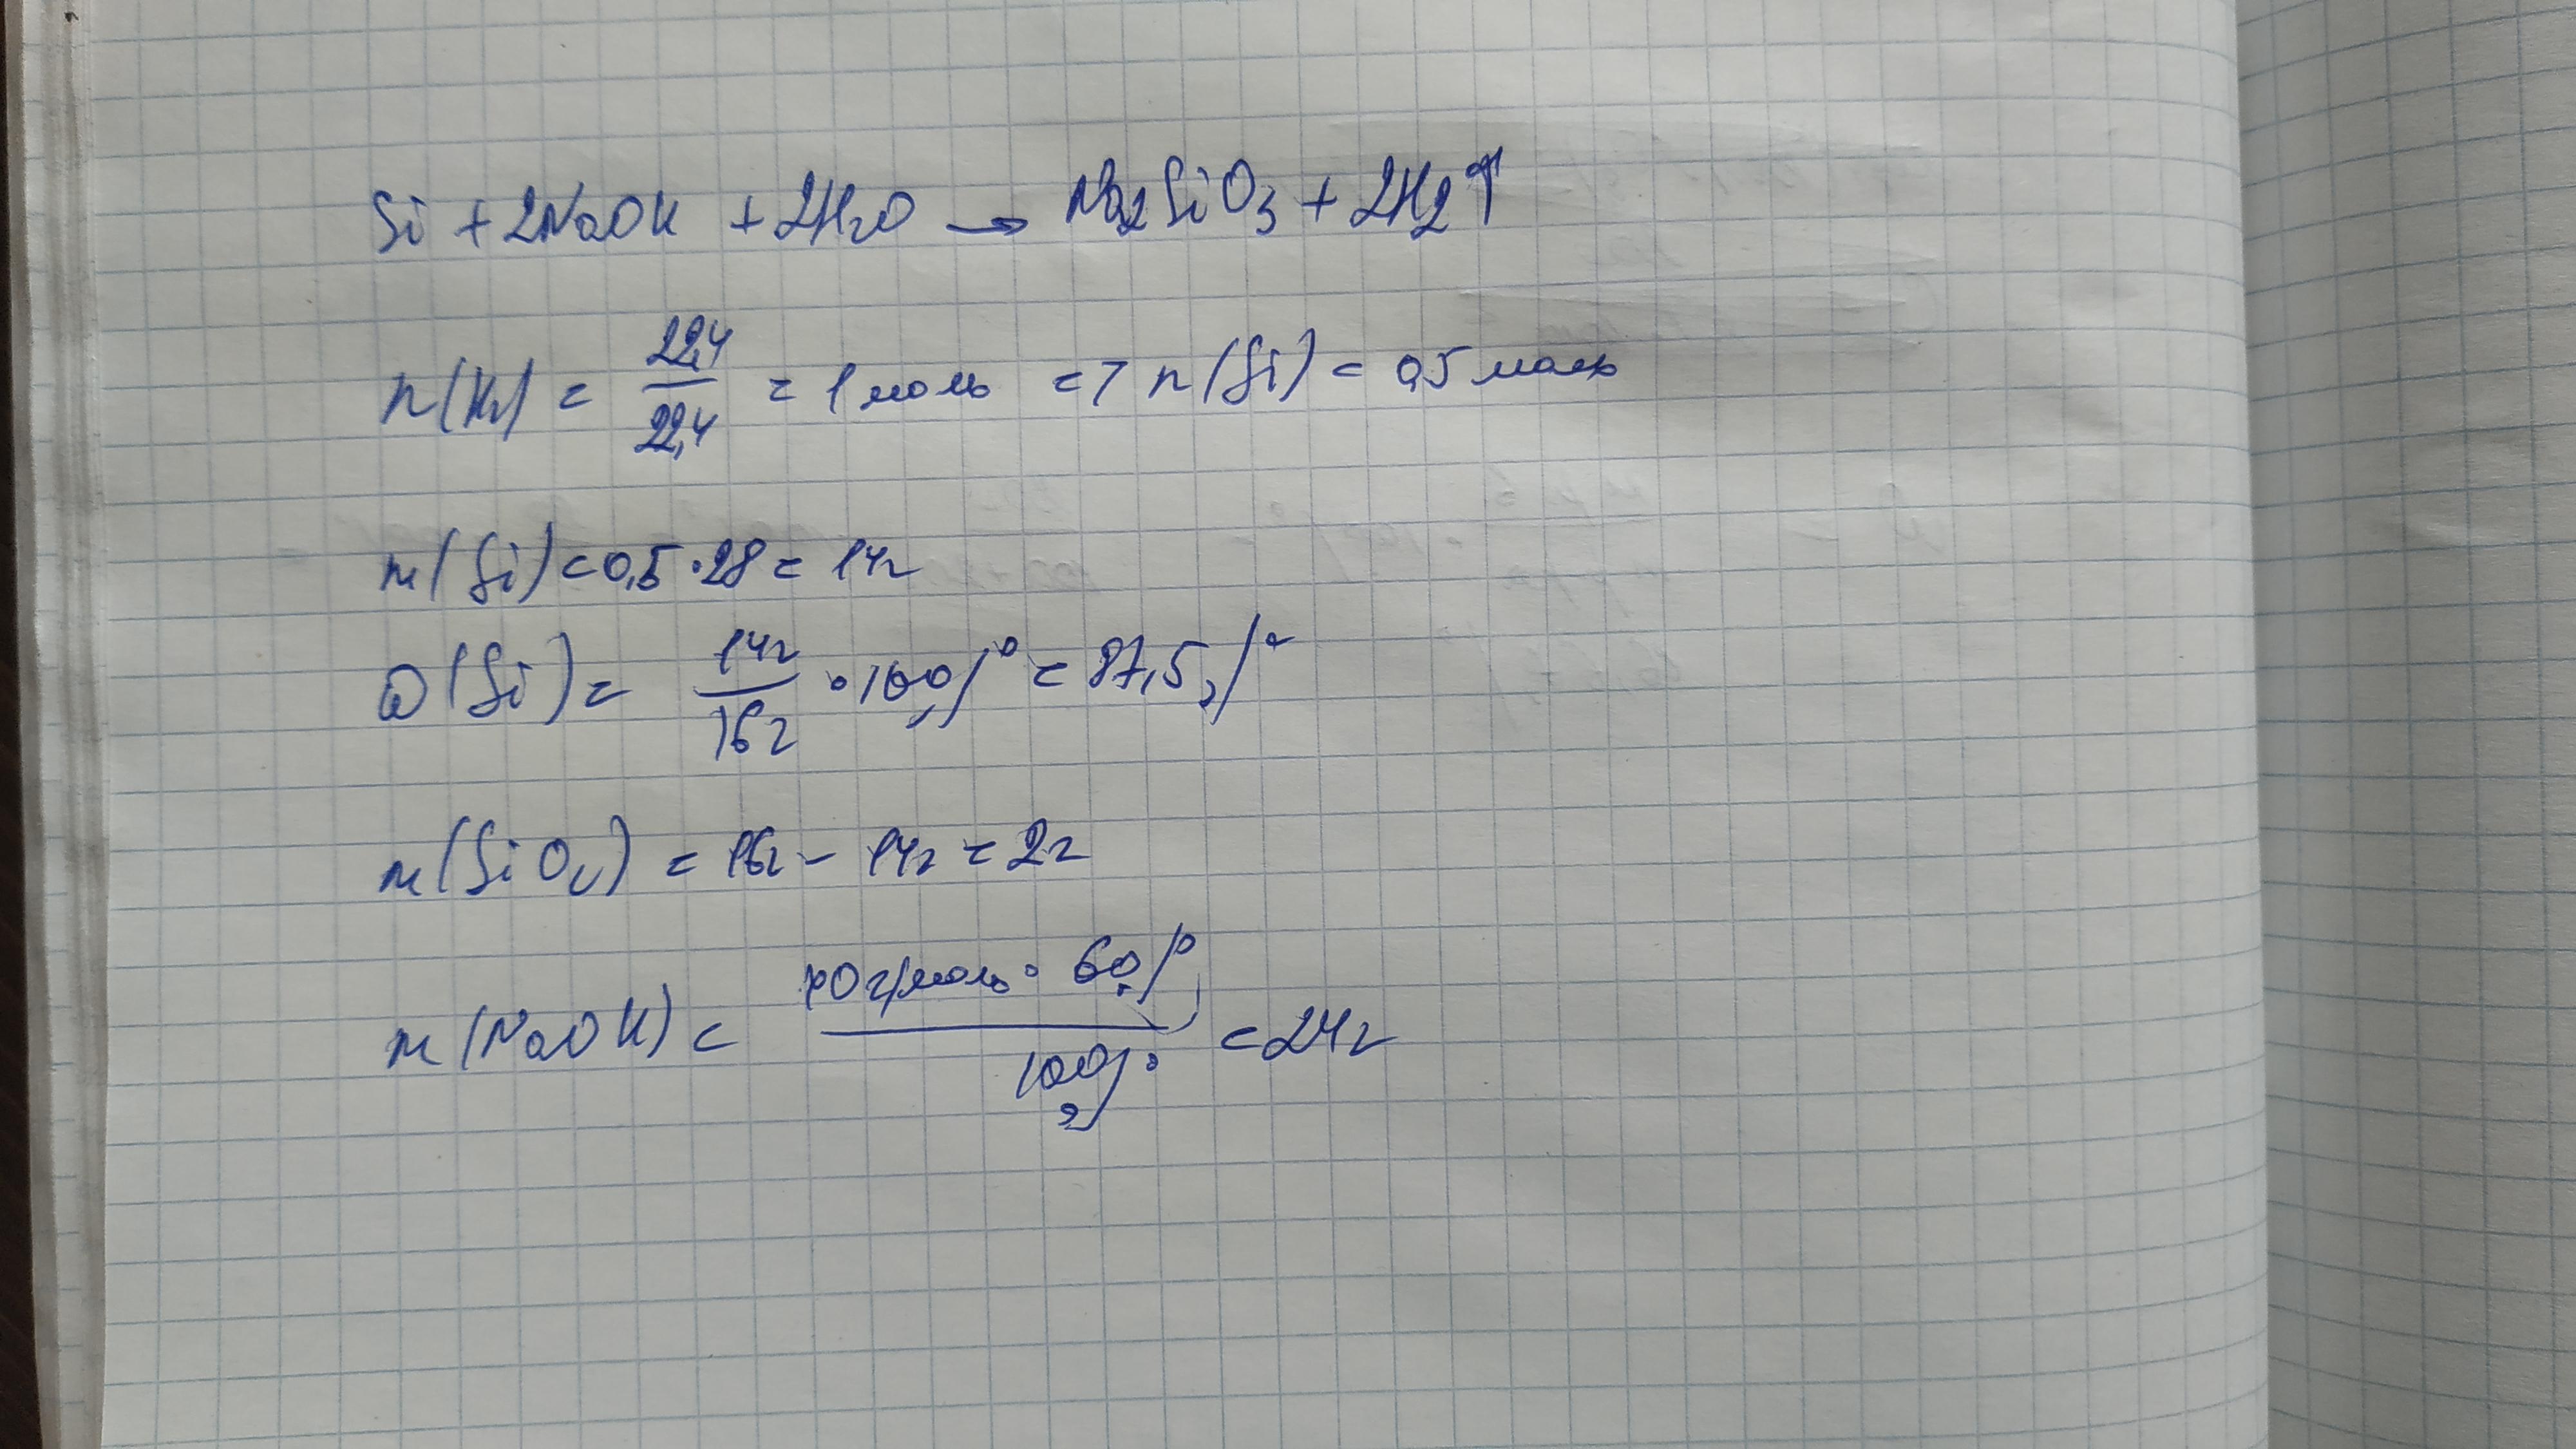 Si + 2NaOH + 2H₂O → Na₂SiO₃ + 2H₂↑
n(H₂) = 22,4/22,4 = 1 моль => n(Si) = 0,5 моль
m(Si) = 0,5 · 28 = 14г
ω(Si) = 14г/16г · 100% = 87,5%
m(SiO₂) = 16г - 14г = 2г
m(NaOH) = 40г/моль · 60%/100% = 24г